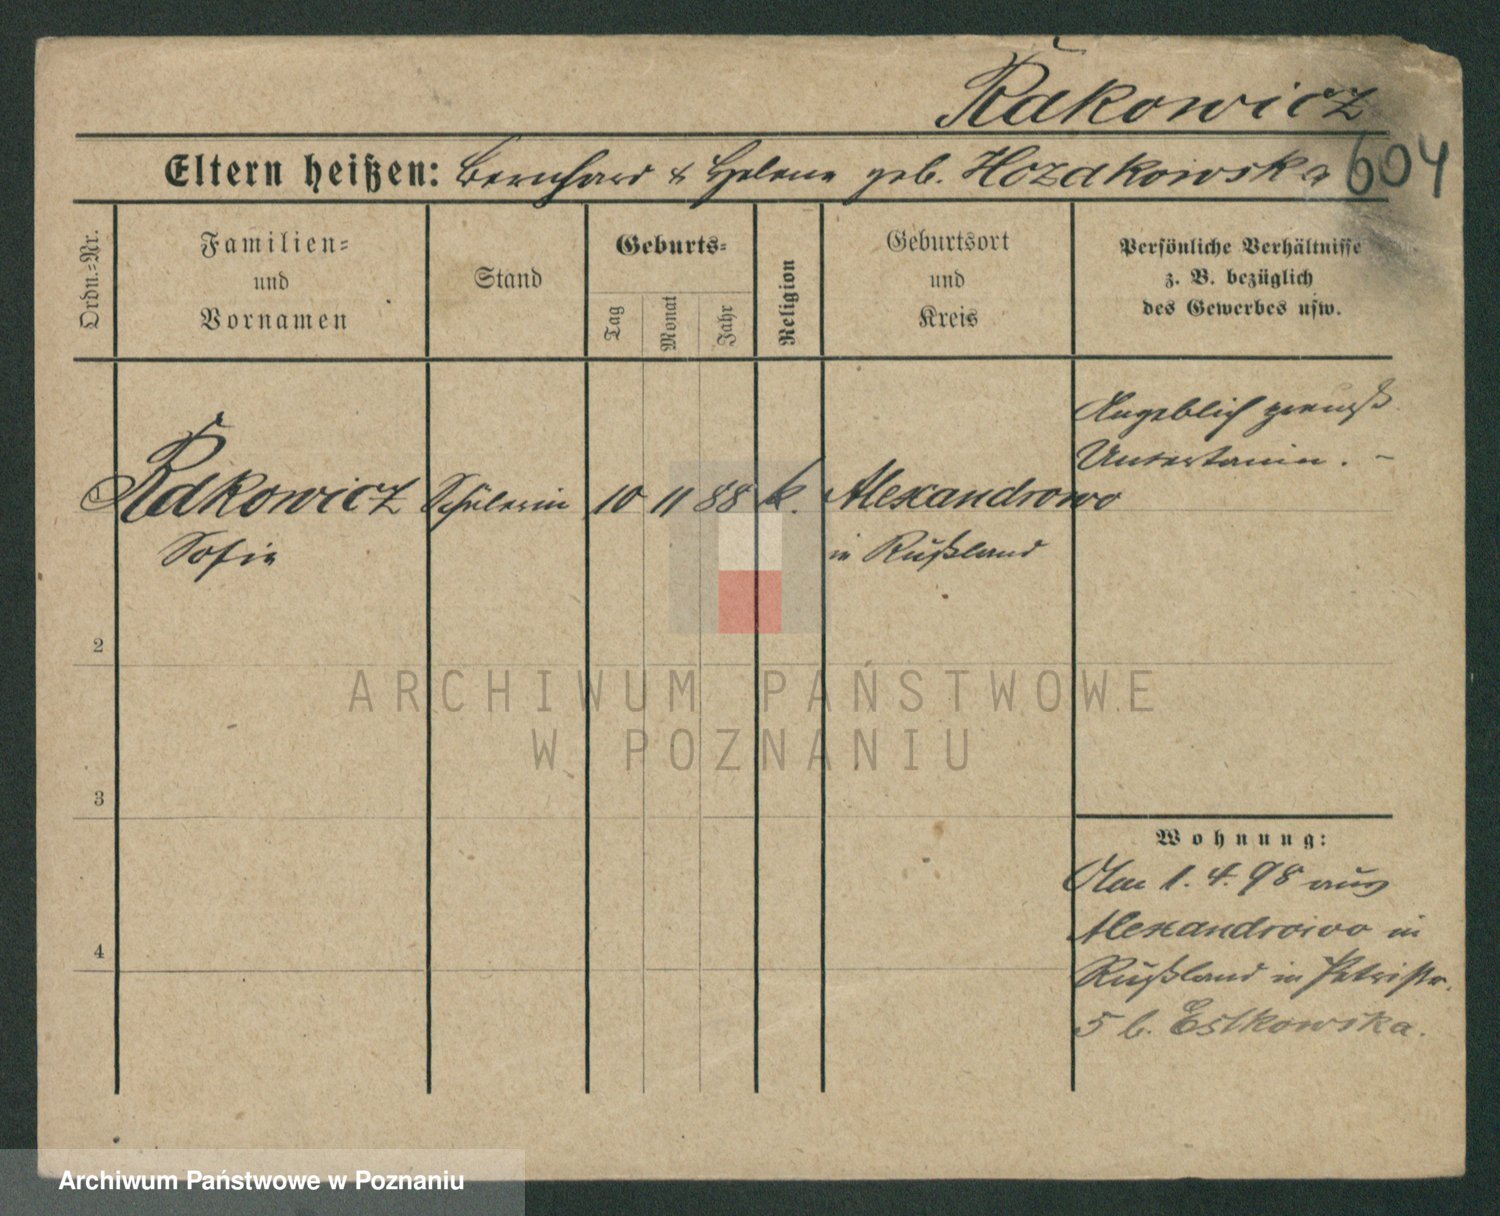 Rakowicz
604
Eltern heißen: Bernhard & Helene geb. Hozakowska
Ordn.=Nr.
Familien=
und
Vornamen
Stand
Geburts=
Tag
Monat
Jahr
Religion
Geburtsort
und
Kreis
Persönliche Verhältnisse
z. B. bezüglich
des Gewerbes usw.
Angeblich preuß.
Untertanin. –
Rakowicz Schülerin 10 11 88 k. Alexandrowo
Sofie in Rußland
2
3
4
Wohnung:
Am 1. 4. 98 aus
Alexandrowo in
Rußland in Petristr.
5 b. Estkowska.
ARCHIWUM PAŃSTWOWE
W POZNANIU
Archiwum Państwowe w Poznaniu